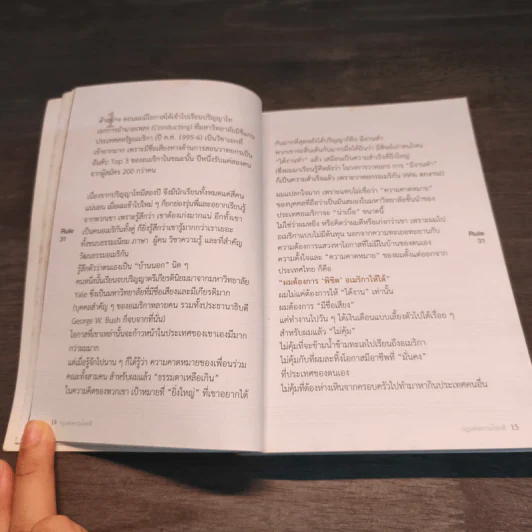 ตอนผมมีโอกาสได้เข้าไปเรียนปริญญาโท
เอกการอำนวยเพลง (Conducting) ที่มหาวิทยาลัย
ประเทศสหรัฐอเมริกา (ปี ค.ศ. 1995-6) เป็นวิชาเอกที่
เข้ายากมาก เพราะมีชื่อเสียงทางด้านการสอนวาทยกรเป็น
อันดับ Top 3 ของอเมริกาในขณะนั้น ปีหนึ่งรับแค่สองคน
จากผู้สมัคร 200 กว่าคน
เนื่องจากปริญญาโทมีสองปี จึงมีนักเรียนทั้งหมดแค่สี่คน
แน่นอน เมื่อผมเข้าไปใหม่ ๆ ก็ยกย่องรุ่นพี่และอยากเรียนรู้
จากพวกเขา เพราะรู้สึกว่า เขาต้องเก่งมากแน่ อีกทั้งเขา
เป็นคนอเมริกันทั้งคู่ ก็ยิ่งรู้สึกว่าเขารู้มากกว่าเราเยอะ
ทั้งขนบธรรมเนียม ภาษา ผู้คน วิชาความรู้ และที่สำคัญ
วัฒนธรรมอเมริกัน
รู้สึกตัวว่าตนเองเป็น "บ้านนอก" นิด ๆ
คนหนึ่งนั้นเรียนจบปริญญาตรีเกียรตินิยมมาจากมหาวิทยาลัย
Yale ซึ่งเป็นมหาวิทยาลัยที่มีชื่อเสียงและมีเกียรติมาก
(บุคคลสำคัญ ๆ ของอเมริกาหลายคน รวมทั้งประธานาธิบดี
George W. Bush ก็จบจากที่นั่น)
โอกาสที่เขาเหล่านั้นจะก้าวหน้าในประเทศของเขาเองมีมาก
กว่าผมมาก
แต่เมื่อรู้จักไปนาน ๆ ก็ได้รู้ว่า ความคาดหมายของเพื่อนร่วม
คณะทั้งสามคน สำหรับผมแล้ว "ธรรมดาเหลือเกิน"
ในความคิดของพวกเขา เป้าหมายที่ "ยิ่งใหญ่" ที่เขาอยากได้
Rule
31
14
กันมากที่สุดหลังได้ปริญญาก็คือ มีงานทำ
"ได้งานทำ" แล้ว เสมือนเป็นความสำเร็จที่ยิ่งใหญ่
ผมแปลกใจมาก เพราะผมไม่เชื่อว่า "ความคาดหมาย"
ของบุคคลที่ถือว่าเป็นมันสมองในมหาวิทยาลัยชั้นนำของ
ประเทศอเมริกาจะ "น่าเบื่อ" ขนาดนี้
ไม่ใช่ว่าผมหยิ่ง หรือคิดว่าผมดีหรือเก่งกว่าเขา เพราะผมไป
อเมริกาแบบไม่มีต้นทุน นอกจากความทะเยอทะยานกับ
ความต้องการแสวงหาโอกาสที่ไม่มีในบ้านของตนเอง
ความตั้งใจและ "ความคาดหมาย" ของผมตั้งแต่ออกจาก
ประเทศไทย ก็คือ
"ผมต้องการ "พิชิต" อเมริกาให้ได้"
ผมไม่แค่ต้องการให้ "ได้งาน" เท่านั้น
ผมต้องการ "มีชื่อเสียง"
แค่ทำงานไปวัน ๆ ได้เงินเดือนแบบเลี้ยงตัวไปได้เรื่อย ๆ
สำหรับผมแล้ว "ไม่คุ้ม"
ไม่คุ้มที่จะข้ามน้ำข้ามทะเลไปเรียนถึงอเมริกา
ไม่คุ้มกับที่ผมละทิ้งโอกาสมีอาชีพที่ "มั่นคง"
ที่ประเทศของตนเอง
ไม่คุ้มที่ต้องห่างเหินจากครอบครัวไปทำมาหากินประเทศคนอื่น
Rule
31
15